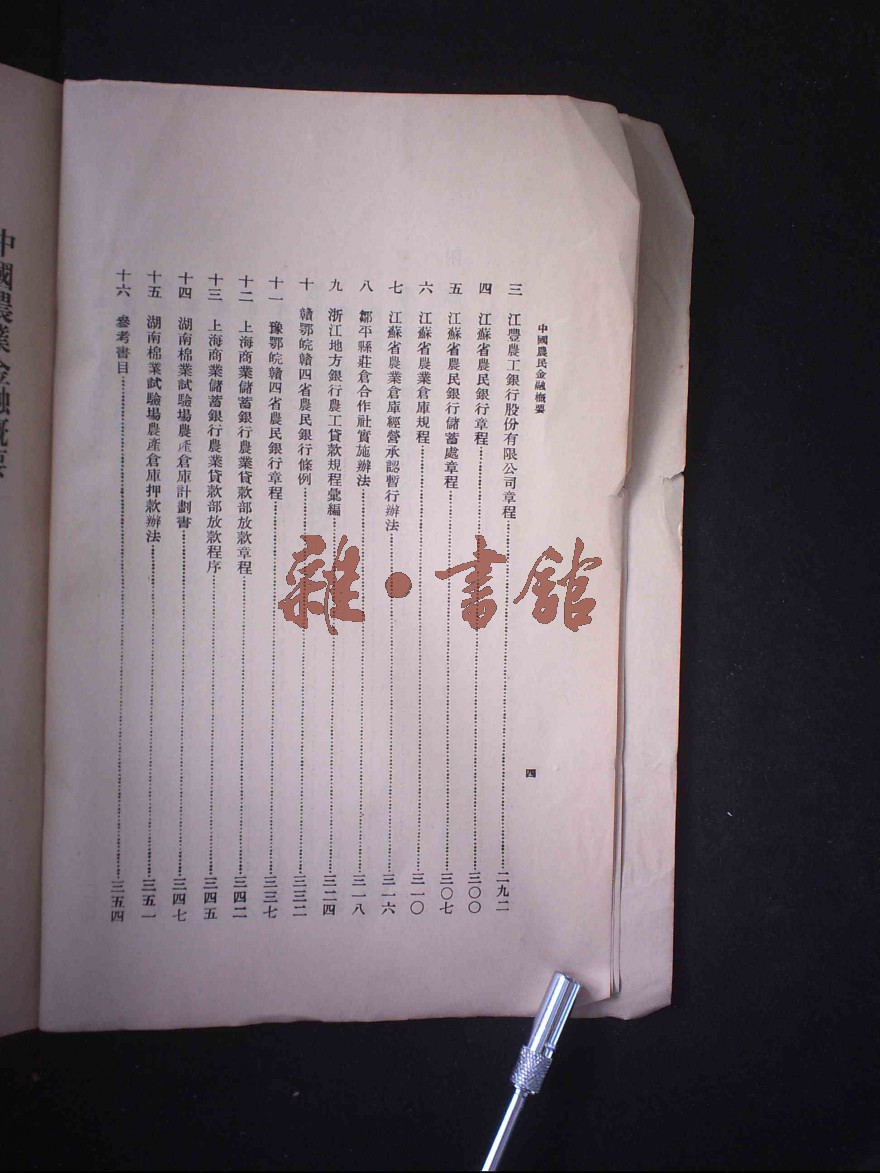 中國農民金融概要
四
三 江豐農工銀行股份有限公司章程……二九二
四 江蘇省農民銀行章程……三〇〇
五 江蘇省農民銀行儲蓄處章程……三〇七
六 江蘇省農業倉庫規程……三一〇
七 江蘇省農業倉庫經營承認暫行辦法……三一六
八 鄒平縣莊倉合作社實施辦法……三一八
九 浙江地方銀行農工貸款規程彙編……三二四
十 贛鄂皖贛四省農民銀行條例……三三二
十一 豫鄂皖贛四省農民銀行章程……三三七
十二 上海商業儲蓄銀行農業貸款部放款章程……三四二
十三 上海商業儲蓄銀行農業貸款部放款程序……三四五
十四 湖南棉業試驗場農產倉庫計劃書……三四七
十五 湖南棉業試驗場農產倉庫押款辦法……三五一
十六 參考書目……三五四
中國農業金融概要
雜·書館